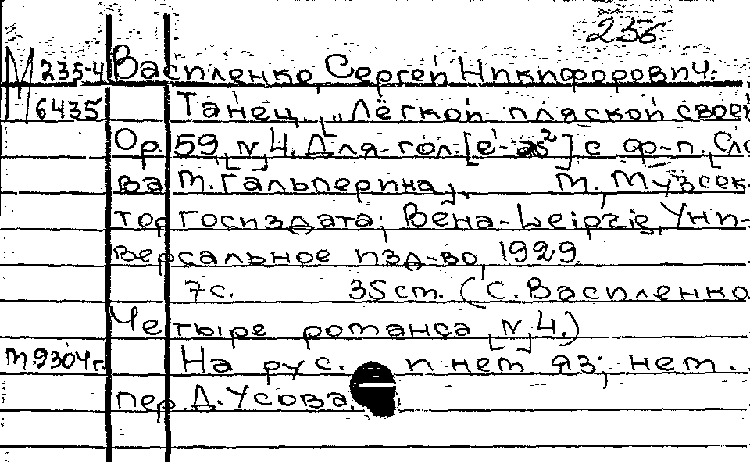 236
М 235-4 Василенко, Сергей Никифорович.
6435 Танец „Лёгкой пляской своей
Ор. 59, N 4. Для гол. [e'-as²] с ф-п. Сло
ва М. Гальперина. М., Музсек
тор Госиздата; Вена-Leipzig, Уни-
версальное изд-во, 1929
7с. 35cm. (С. Василенко
Четыре романса, N 4.)
М9304г. На рус. и нем яз; нем.
пер. Д. Усова.